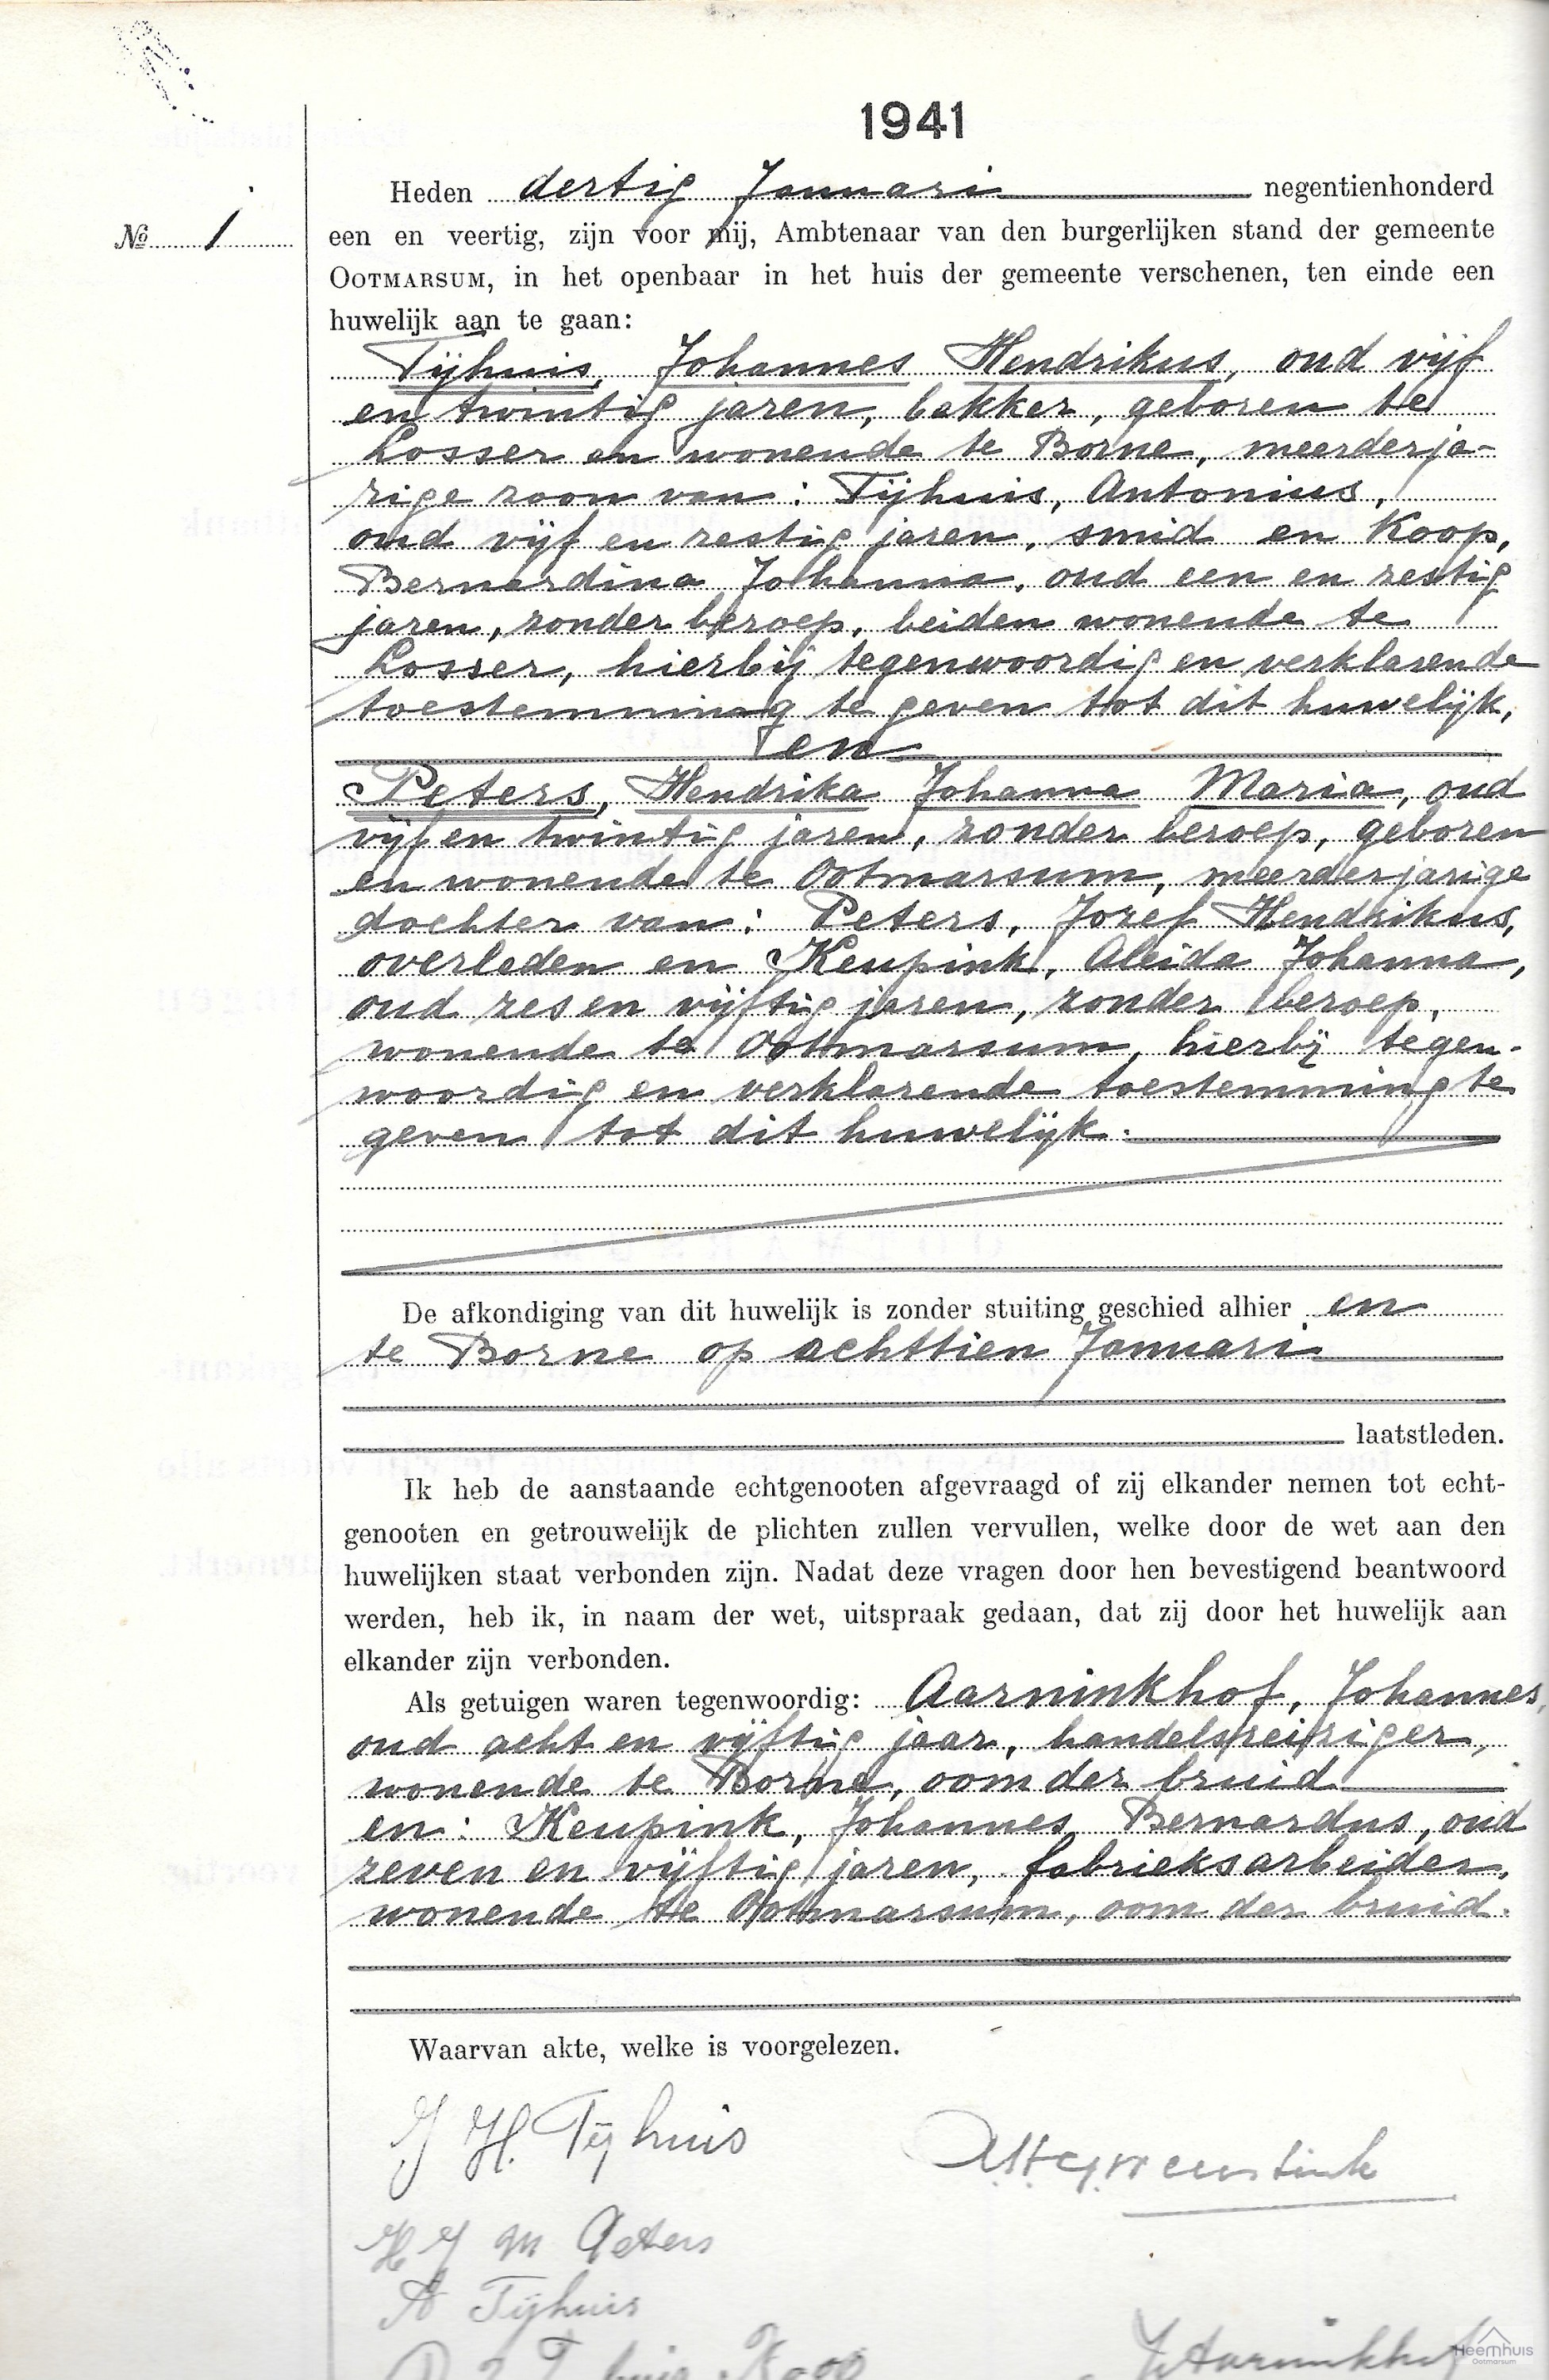 1941
Heden dertig Januari negentienhonderd
№ 1
een en veertig, zijn voor mij, Ambtenaar van den burgerlijken stand der gemeente
OOTMARSUM, in het openbaar in het huis der gemeente verschenen, ten einde een
huwelijk aan te gaan:
Tijhuis, Johannes Hendrikus, oud vijf
en twintig jaren, bakker, geboren te
Losser en wonende te Borne, meerderja-
rige zoon van: Tijhuis, Antonius,
oud vijf en zestig jaren, smid en Koop,
Bernardina Johanna, oud een en zestig
jaren, zonder beroep, beiden wonende te
Losser, hierbij tegenwoordig en verklarende
toestemming te geven tot dit huwelijk,
en
Peters, Hendrika Johanna Maria, oud
vijf en twintig jaren, zonder beroep, geboren
en wonende te Ootmarsum, meerderjarige
dochter van: Peters, Jozef Hendrikus,
overleden en Keupink, Aleida Johanna,
oud zes en vijftig jaren, zonder beroep,
wonende te Ootmarsum, hierbij tegen-
woordig en verklarende toestemming te
geven tot dit huwelijk.
De afkondiging van dit huwelijk is zonder stuiting geschied alhier en
te Borne op achttien Januari
laatstleden.
Ik heb de aanstaande echtgenooten afgevraagd of zij elkander nemen tot echt-
genooten en getrouwelijk de plichten zullen vervullen, welke door de wet aan den
huwelijken staat verbonden zijn. Nadat deze vragen door hen bevestigend beantwoord
werden, heb ik, in naam der wet, uitspraak gedaan, dat zij door het huwelijk aan
elkander zijn verbonden.
Als getuigen waren tegenwoordig: Aarninkhof, Johannes,
oud acht en vijftig jaar, handelsreiziger,
wonende te Borne, oom der bruid
en: Keupink, Johannes Bernardus, oud
zeven en vijftig jaren, fabrieksarbeider,
wonende te Ootmarsum, oom der bruid.
Waarvan akte, welke is voorgelezen.
J H. Tijhuis
H J M Peters
A Tijhuis
J Aarninkhof
Heemhuis
Ootmarsum